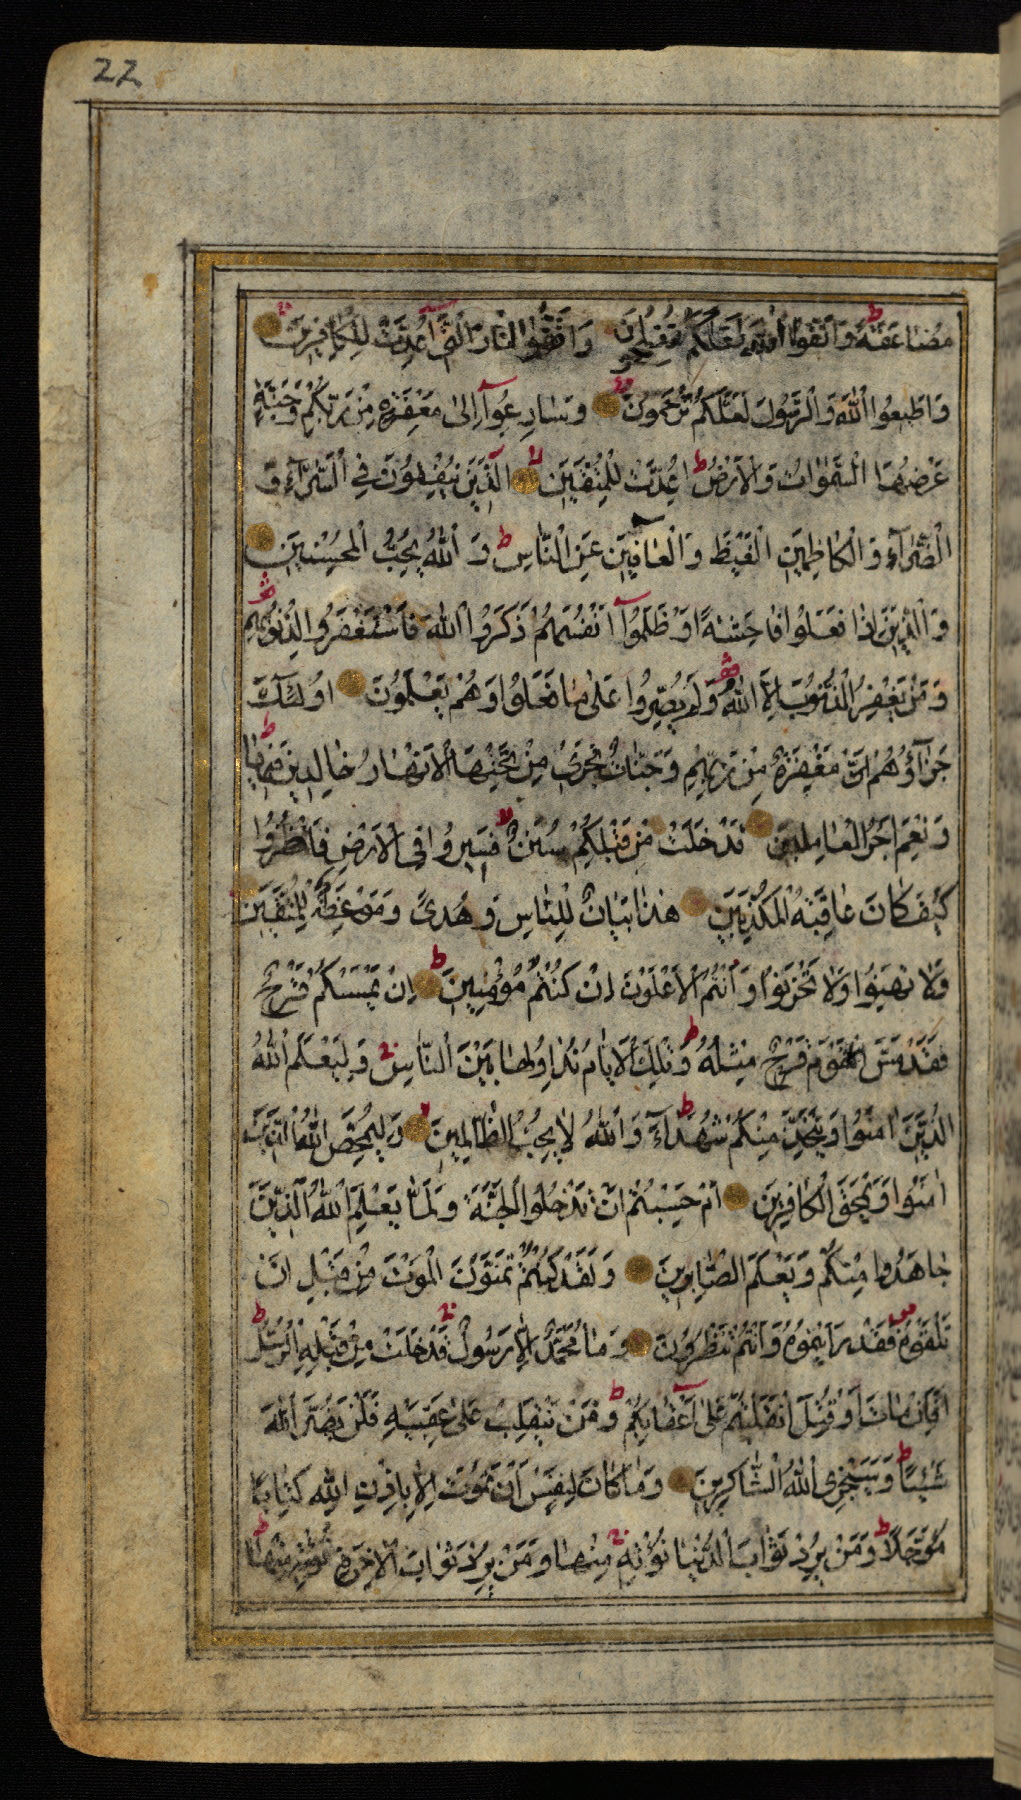 22
مُضَاعَفَةً وَاتَّقُوا اللّٰهَ لَعَلَّكُمْ تُفْلِحُونَ وَاتَّقُوا النَّارَ الَّتِي أُعِدَّتْ لِلْكَافِرِينَ
وَاَطِيعُوا اللّٰهَ وَالرَّسُولَ لَعَلَّكُمْ تُرْحَمُونَ وَسَارِعُوآ اِلٰى مَغْفِرَةٍ مِنْ رَبِّكُمْ وَجَنَّةٍ
عَرْضُهَا السَّمٰوَاتُ وَالْاَرْضُ اُعِدَّتْ لِلْمُتَّقِينَ الَّذِينَ يُنْفِقُونَ فِي السَّرَّآءِ وَ
الضَّرَّآءِ وَ الْكَاظِمِينَ الْغَيْظَ وَ الْعَافِينَ عَنِ النَّاسِ وَ اللّٰهُ يُحِبُّ الْمُحْسِنِينَ
وَ الَّذِينَ اِذَا فَعَلُوا فَاحِشَةً اَوْ ظَلَمُوآ اَنْفُسَهُمْ ذَكَرُوا اللّٰهَ فَاسْتَغْفَرُوا لِذُنُوبِهِمْ
وَ مَنْ يَغْفِرُ الذُّنُوبَ اِلَّا اللّٰهُ وَلَمْ يُصِرُّوا عَلٰى مَا فَعَلُوا وَهُمْ يَعْلَمُونَ اُولٰئِكَ
جَزَآؤُهُمْ مَغْفِرَةٌ مِنْ رَبِّهِمْ وَجَنَّاتٌ تَجْرِي مِنْ تَحْتِهَا الْاَنْهَارُ خَالِدِينَ فِيهَا
وَ نِعْمَ اَجْرُ الْعَامِلِينَ قَدْ خَلَتْ مِنْ قَبْلِكُمْ سُنَنٌ فَسِيرُوا فِي الْاَرْضِ فَانْظُرُوا
كَيْفَ كَانَ عَاقِبَةُ الْمُكَذِّبِينَ هٰذَا بَيَانٌ لِلنَّاسِ وَ هُدًى وَ مَوْعِظَةٌ لِلْمُتَّقِينَ
وَلَا تَهِنُوا وَلَا تَحْزَنُوا وَ اَنْتُمُ الْاَعْلَوْنَ اِنْ كُنْتُمْ مُؤْمِنِينَ اِنْ يَمْسَسْكُمْ قَرْحٌ
فَقَدْ مَسَّ الْقَوْمَ قَرْحٌ مِثْلُهُ وَ تِلْكَ الْاَيَّامُ نُدَاوِلُهَا بَيْنَ النَّاسِ وَ لِيَعْلَمَ اللّٰهُ
الَّذِينَ اٰمَنُوا وَ يَتَّخِذَ مِنْكُمْ شُهَدَآءَ وَ اللّٰهُ لَا يُحِبُّ الظَّالِمِينَ وَ لِيُمَحِّصَ اللّٰهُ الَّذِينَ
اٰمَنُوا وَ يَمْحَقَ الْكَافِرِينَ اَمْ حَسِبْتُمْ اَنْ تَدْخُلُوا الْجَنَّةَ وَ لَمَّا يَعْلَمِ اللّٰهُ الَّذِينَ
جَاهَدُوا مِنْكُمْ وَ يَعْلَمَ الصَّابِرِينَ وَ لَقَدْ كُنْتُمْ تَمَنَّوْنَ الْمَوْتَ مِنْ قَبْلِ اَنْ
تَلْقَوْهُ فَقَدْ رَاَيْتُمُوهُ وَ اَنْتُمْ تَنْظُرُونَ وَ مَا مُحَمَّدٌ اِلَّا رَسُولٌ قَدْ خَلَتْ مِنْ قَبْلِهِ الرُّسُلُ
اَفَاِنْ مَاتَ اَوْ قُتِلَ انْقَلَبْتُمْ عَلٰى اَعْقَابِكُمْ وَ مَنْ يَنْقَلِبْ عَلٰى عَقِبَيْهِ فَلَنْ يَضُرَّ اللّٰهَ
شَيْئًا وَ سَيَجْزِي اللّٰهُ الشَّاكِرِينَ وَ مَا كَانَ لِنَفْسٍ اَنْ تَمُوتَ اِلَّا بِاِذْنِ اللّٰهِ كِتَابًا
مُؤَجَّلًا وَ مَنْ يُرِدْ ثَوَابَ الدُّنْيَا نُؤْتِهِ مِنْهَا وَ مَنْ يُرِدْ ثَوَابَ الْاٰخِرَةِ نُؤْتِهِ مِنْهَا